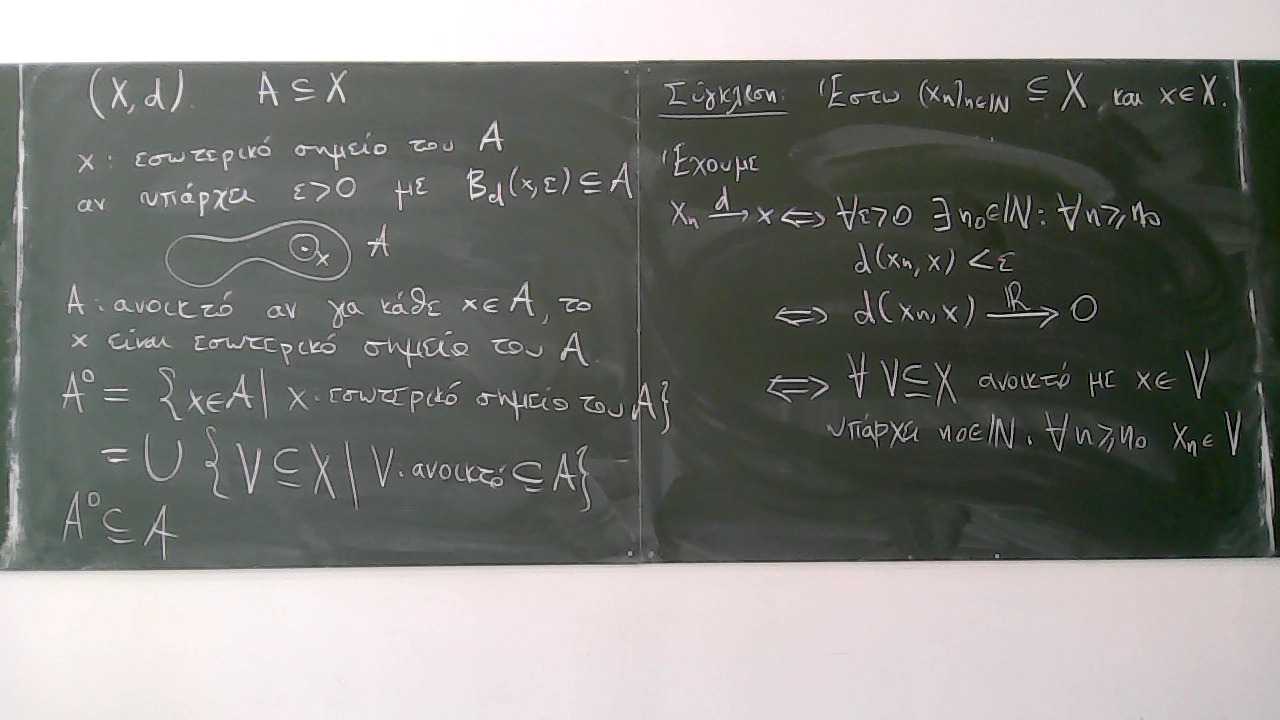 (X, d) A ⊆ X
x : εσωτερικό σημείο του A
αν υπάρχει ε>0 με B_d(x, ε) ⊆ A
x A
A : ανοικτό αν για κάθε x ∈ A, το
x είναι εσωτερικό σημείο του A.
A⁰ = {x ∈ A | x : εσωτερικό σημείο του A}
= ∪ {V ⊆ X | V : ανοικτό ⊆ A}
A⁰ ⊆ A
Σύγκλιση: Έστω (xₙ)ₙ∈ℕ ⊆ X και x ∈ X.
Έχουμε
xₙ →^d x ⟺ ∀ε>0 ∃ n₀∈ℕ : ∀n ⩾ n₀
d(xₙ, x) < ε
⟺ d(xₙ, x) →^ℝ 0
⟺ ∀ V ⊆ X ανοικτό με x ∈ V
υπάρχει n₀∈ℕ : ∀n ⩾ n₀ xₙ ∈ V